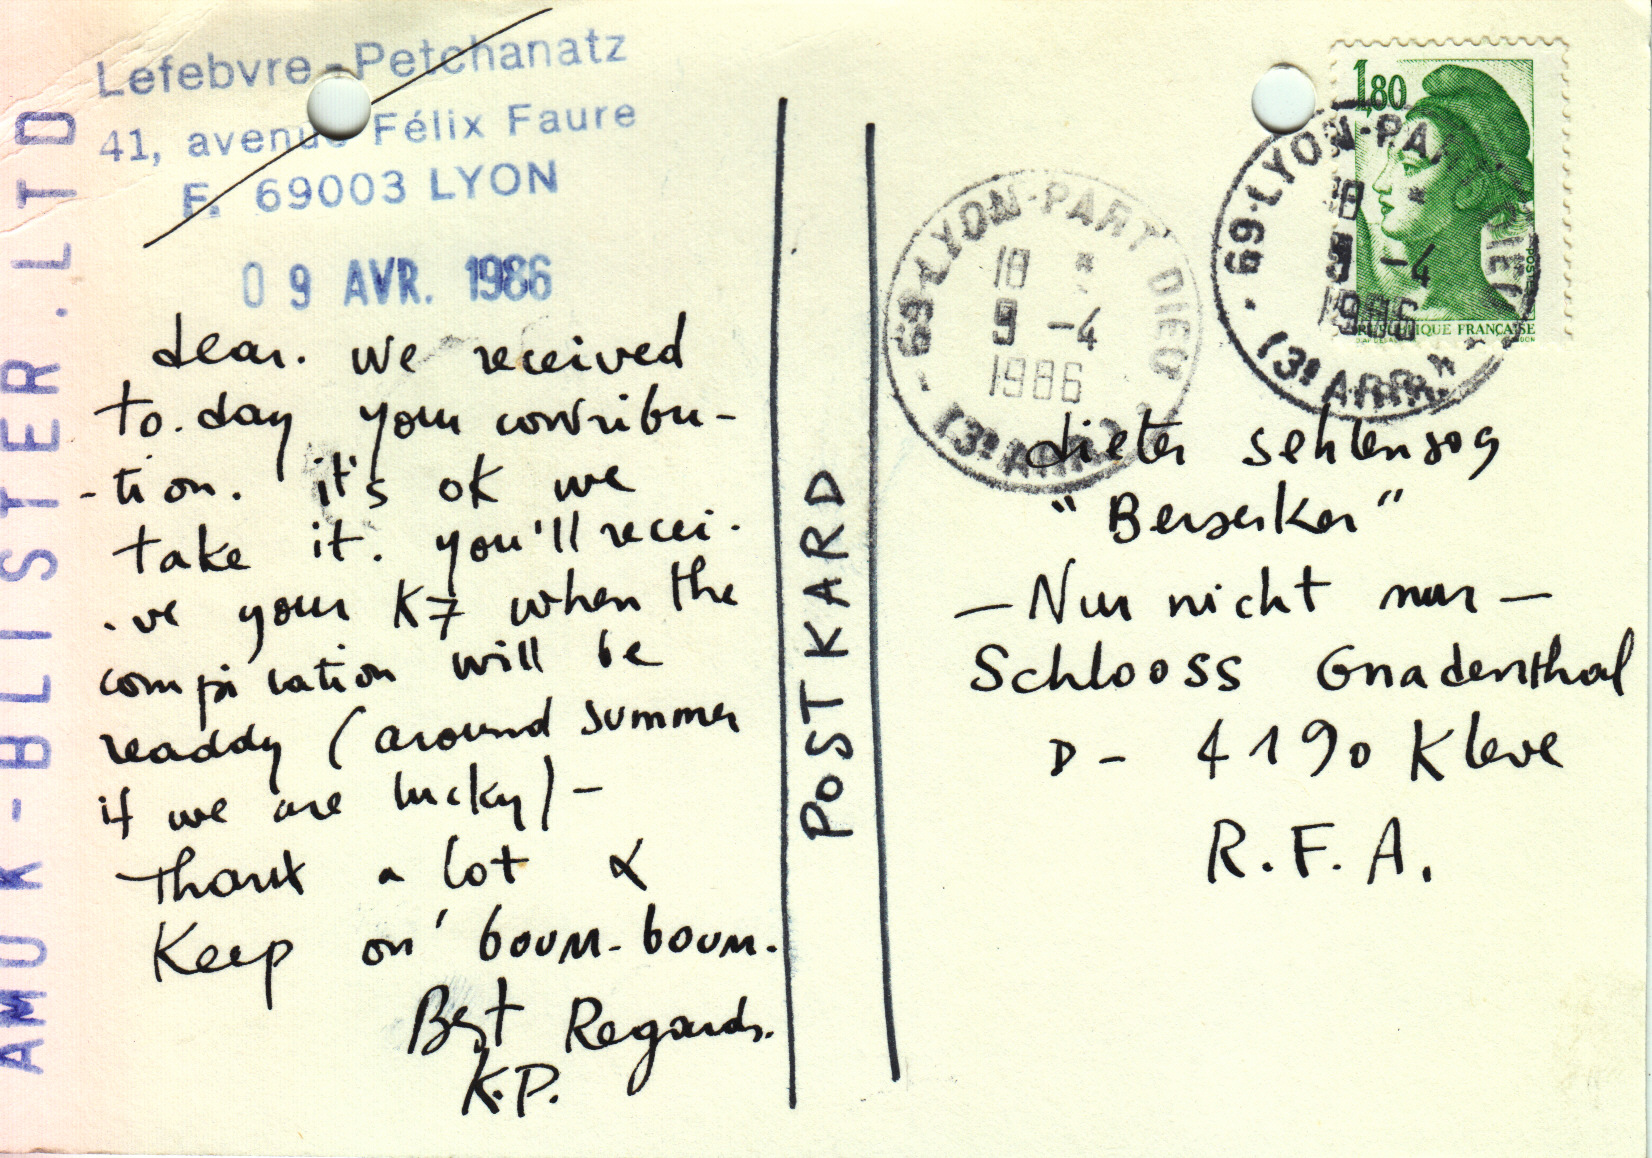 AMUK-BLISTER.LTD
Lefebvre-Petchanatz
41, avenue Félix Faure
F. 69003 LYON
09 AVR. 1986
dear. we received
to.day your contribu-
-tion. it's ok we
take it. you'll recei.
.ve your K7 when the
compilation will be
readdy (around summer
if we are lucky) -
Thank a lot &
Keep on' boum-boum.
Best Regards.
K.P.
POSTKARD
69-LYON-PART DIEU
18 *
9 -4
1986
(3e ARRt)
1,80
REPUBLIQUE FRANÇAISE
69-LYON-PART DIEU
18 *
9 -4
1986
(3e ARRt)
dieter sehlensog
"Berserker"
- Nur nicht nur -
Schlooss Gnadenthal
D - 4190 Kleve
R.F.A.